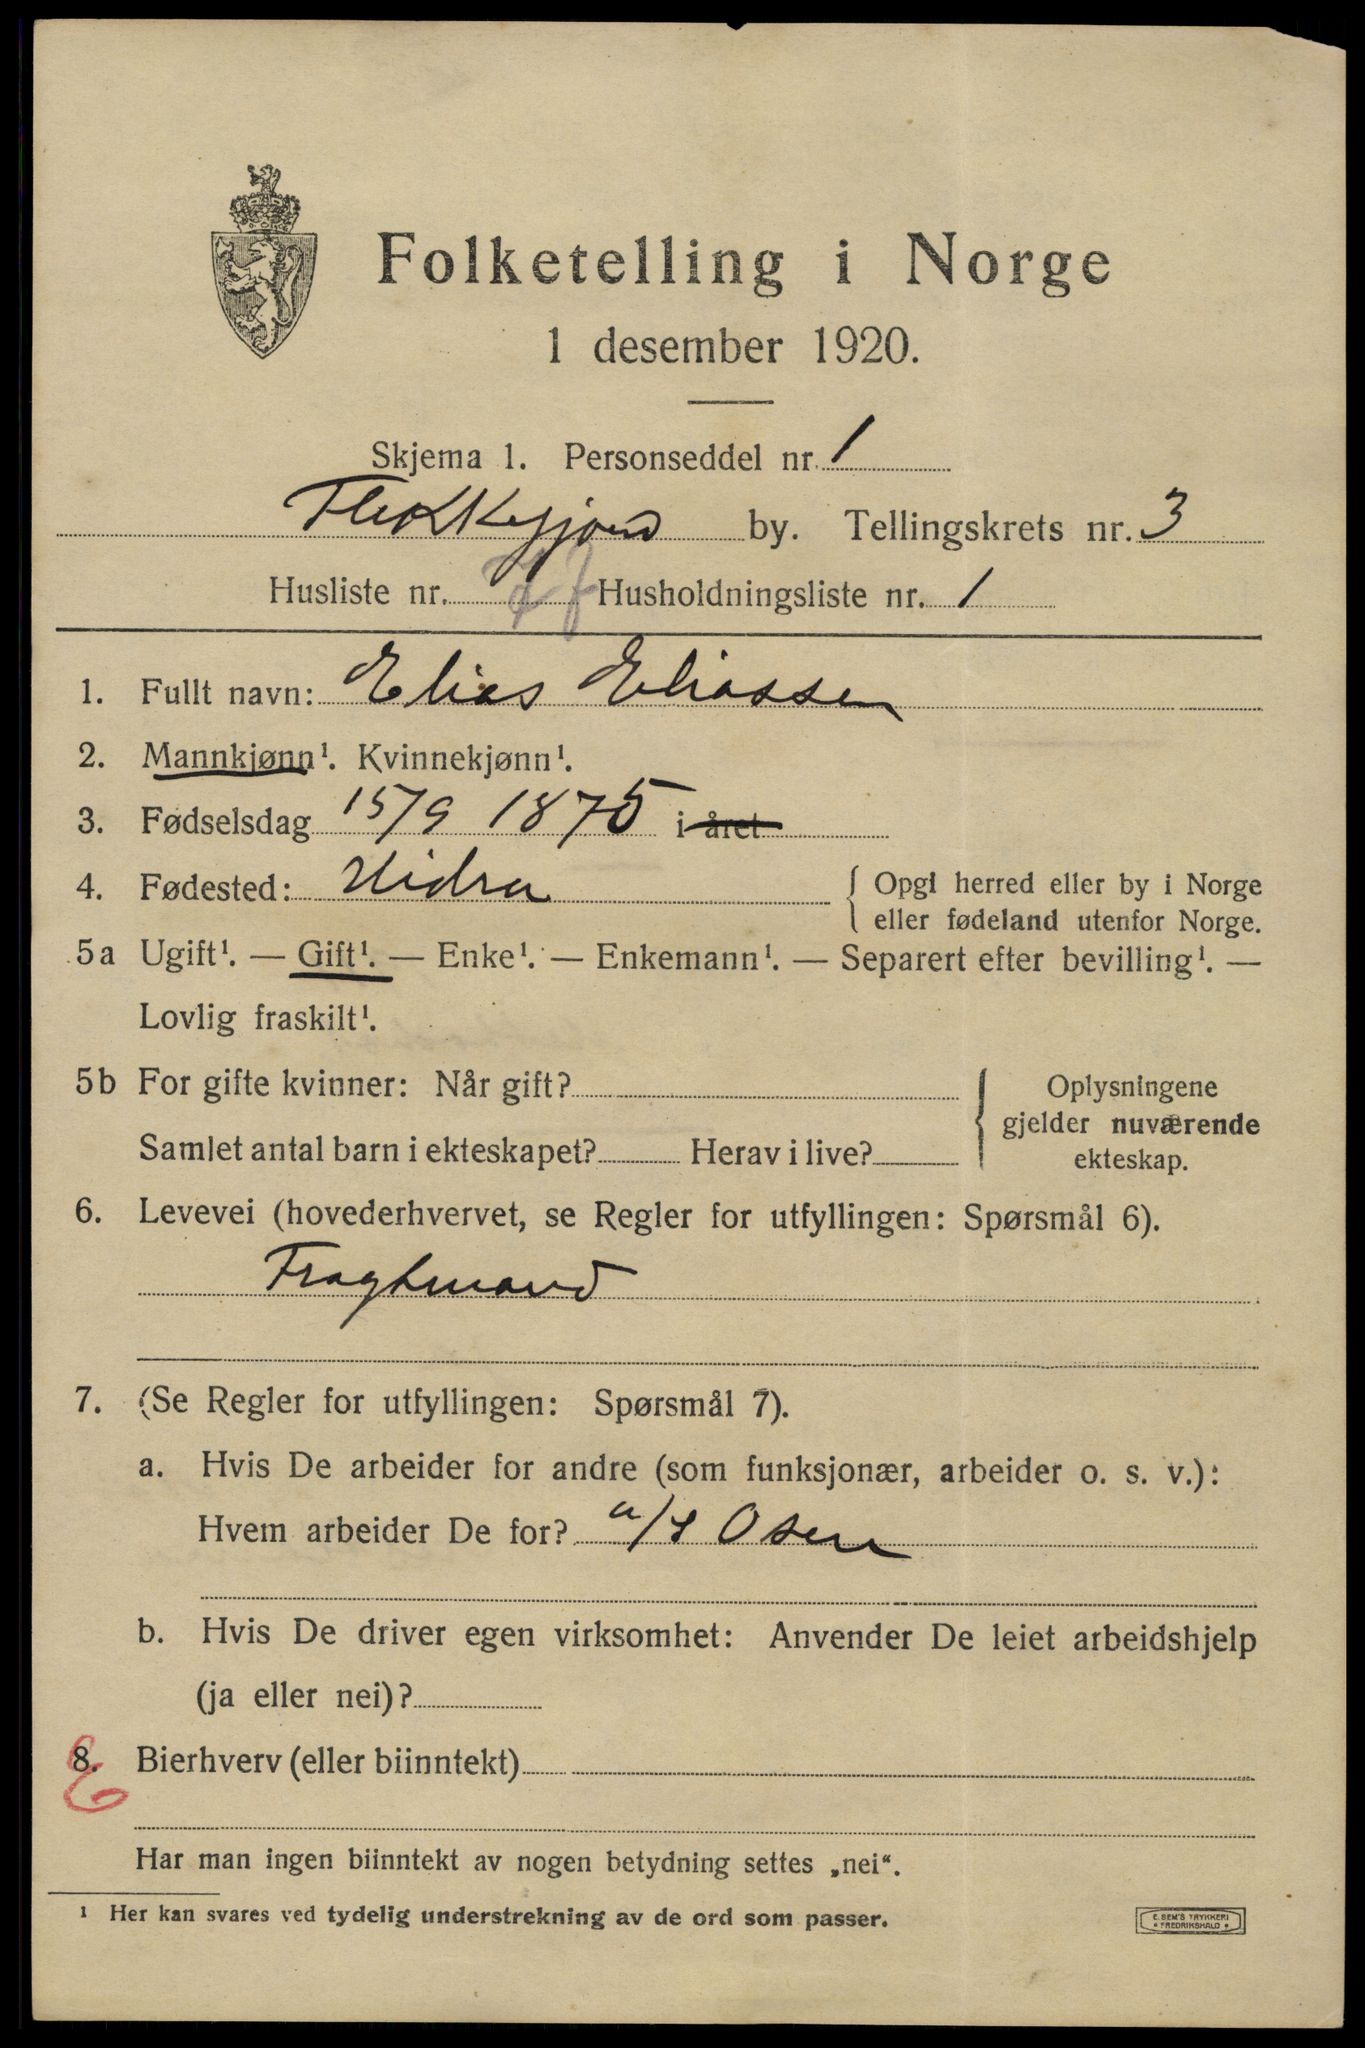 Folketelling i Norge
1 desember 1920.
Skjema 1. Personseddel nr. 1
Flekkefjord by. Tellingskrets nr. 3
Husliste nr. Husholdningsliste nr. 1
1. Fullt navn: Elias Eliassen
2. Mannkjønn¹. Kvinnekjønn¹.
3. Fødselsdag 15/9 1875 i året
4. Fødested: Hidra { Opgi herred eller by i Norge
eller fødeland utenfor Norge.
5a Ugift¹. — Gift¹. — Enke¹. — Enkemann¹. — Separert efter bevilling¹. —
Lovlig fraskilt¹.
5b For gifte kvinner: Når gift? { Oplysningene
gjelder nuværende
Samlet antal barn i ekteskapet? Herav i live?
ekteskap.
6. Levevei (hovederhvervet, se Regler for utfyllingen: Spørsmål 6).
Fragtmand
7. (Se Regler for utfyllingen: Spørsmål 7).
a. Hvis De arbeider for andre (som funksjonær, arbeider o. s. v.):
Hvem arbeider De for? a/s Osen
b. Hvis De driver egen virksomhet: Anvender De leiet arbeidshjelp
(ja eller nei)?
8. Bierhverv (eller biinntekt)
E
Har man ingen biinntekt av nogen betydning settes „nei“.
¹ Her kan svares ved tydelig understrekning av de ord som passer.
E. SEM'S TRYKKERI
* FREDRIKSHALD *